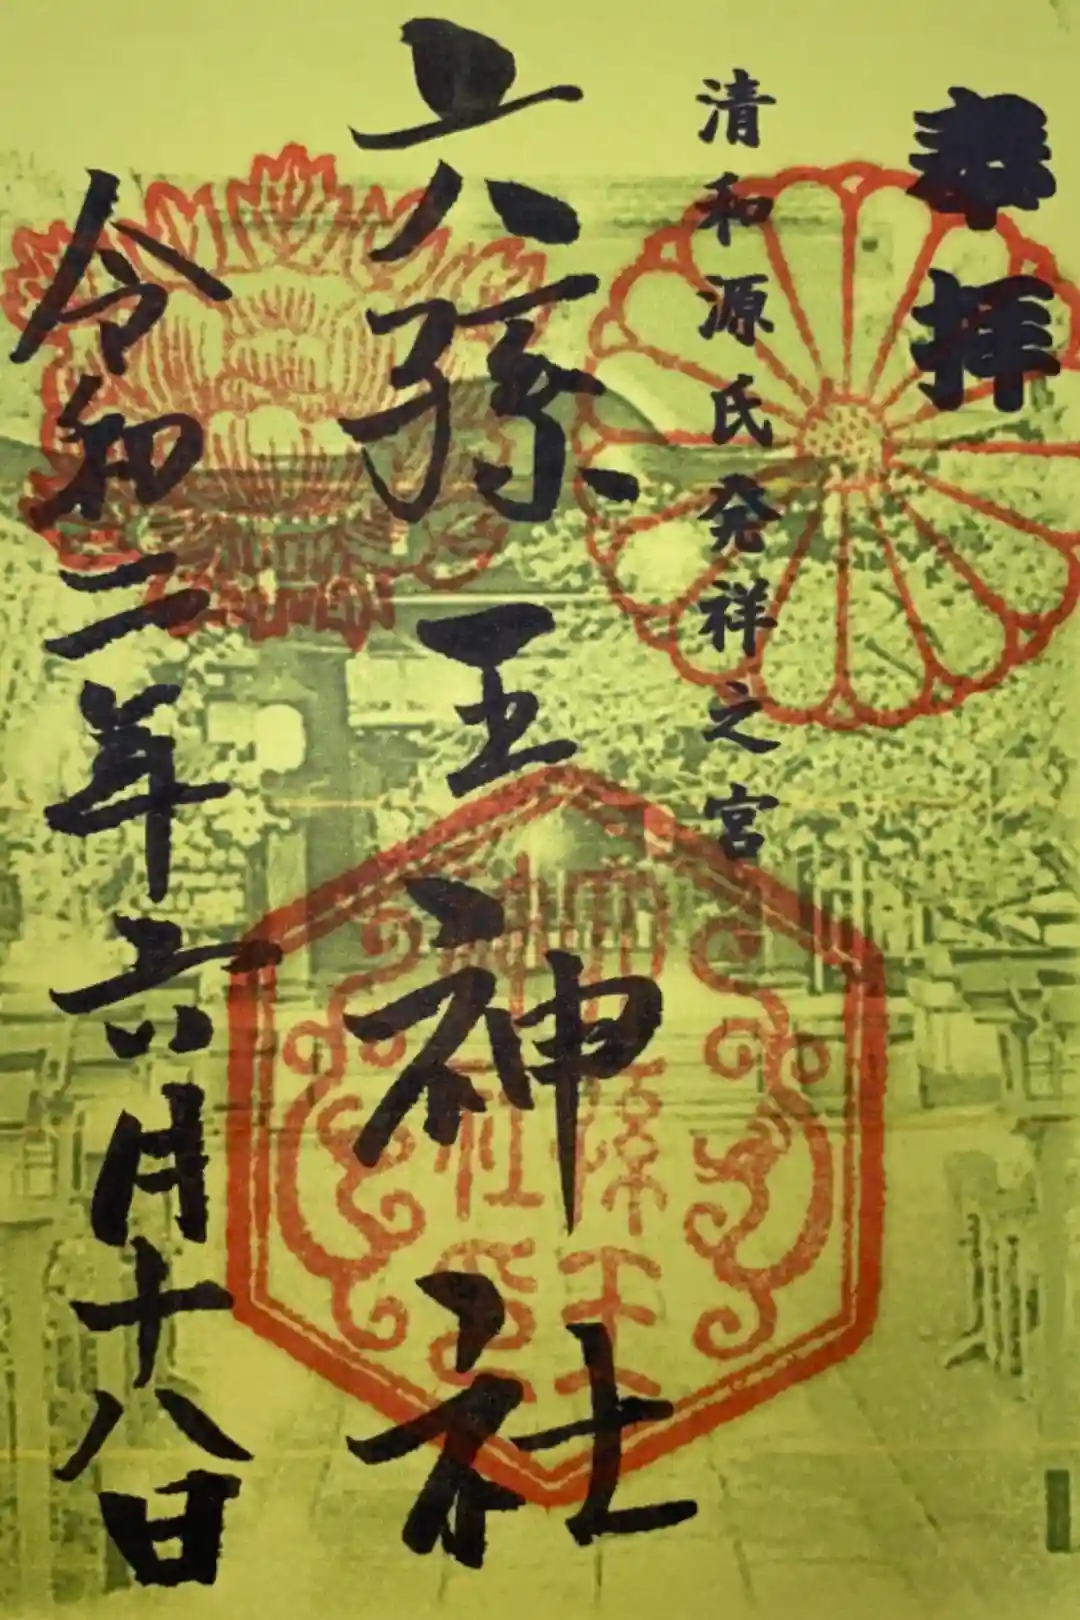 奉拝
清和源氏発祥之宮
六孫王神社
令和二年六月十八日